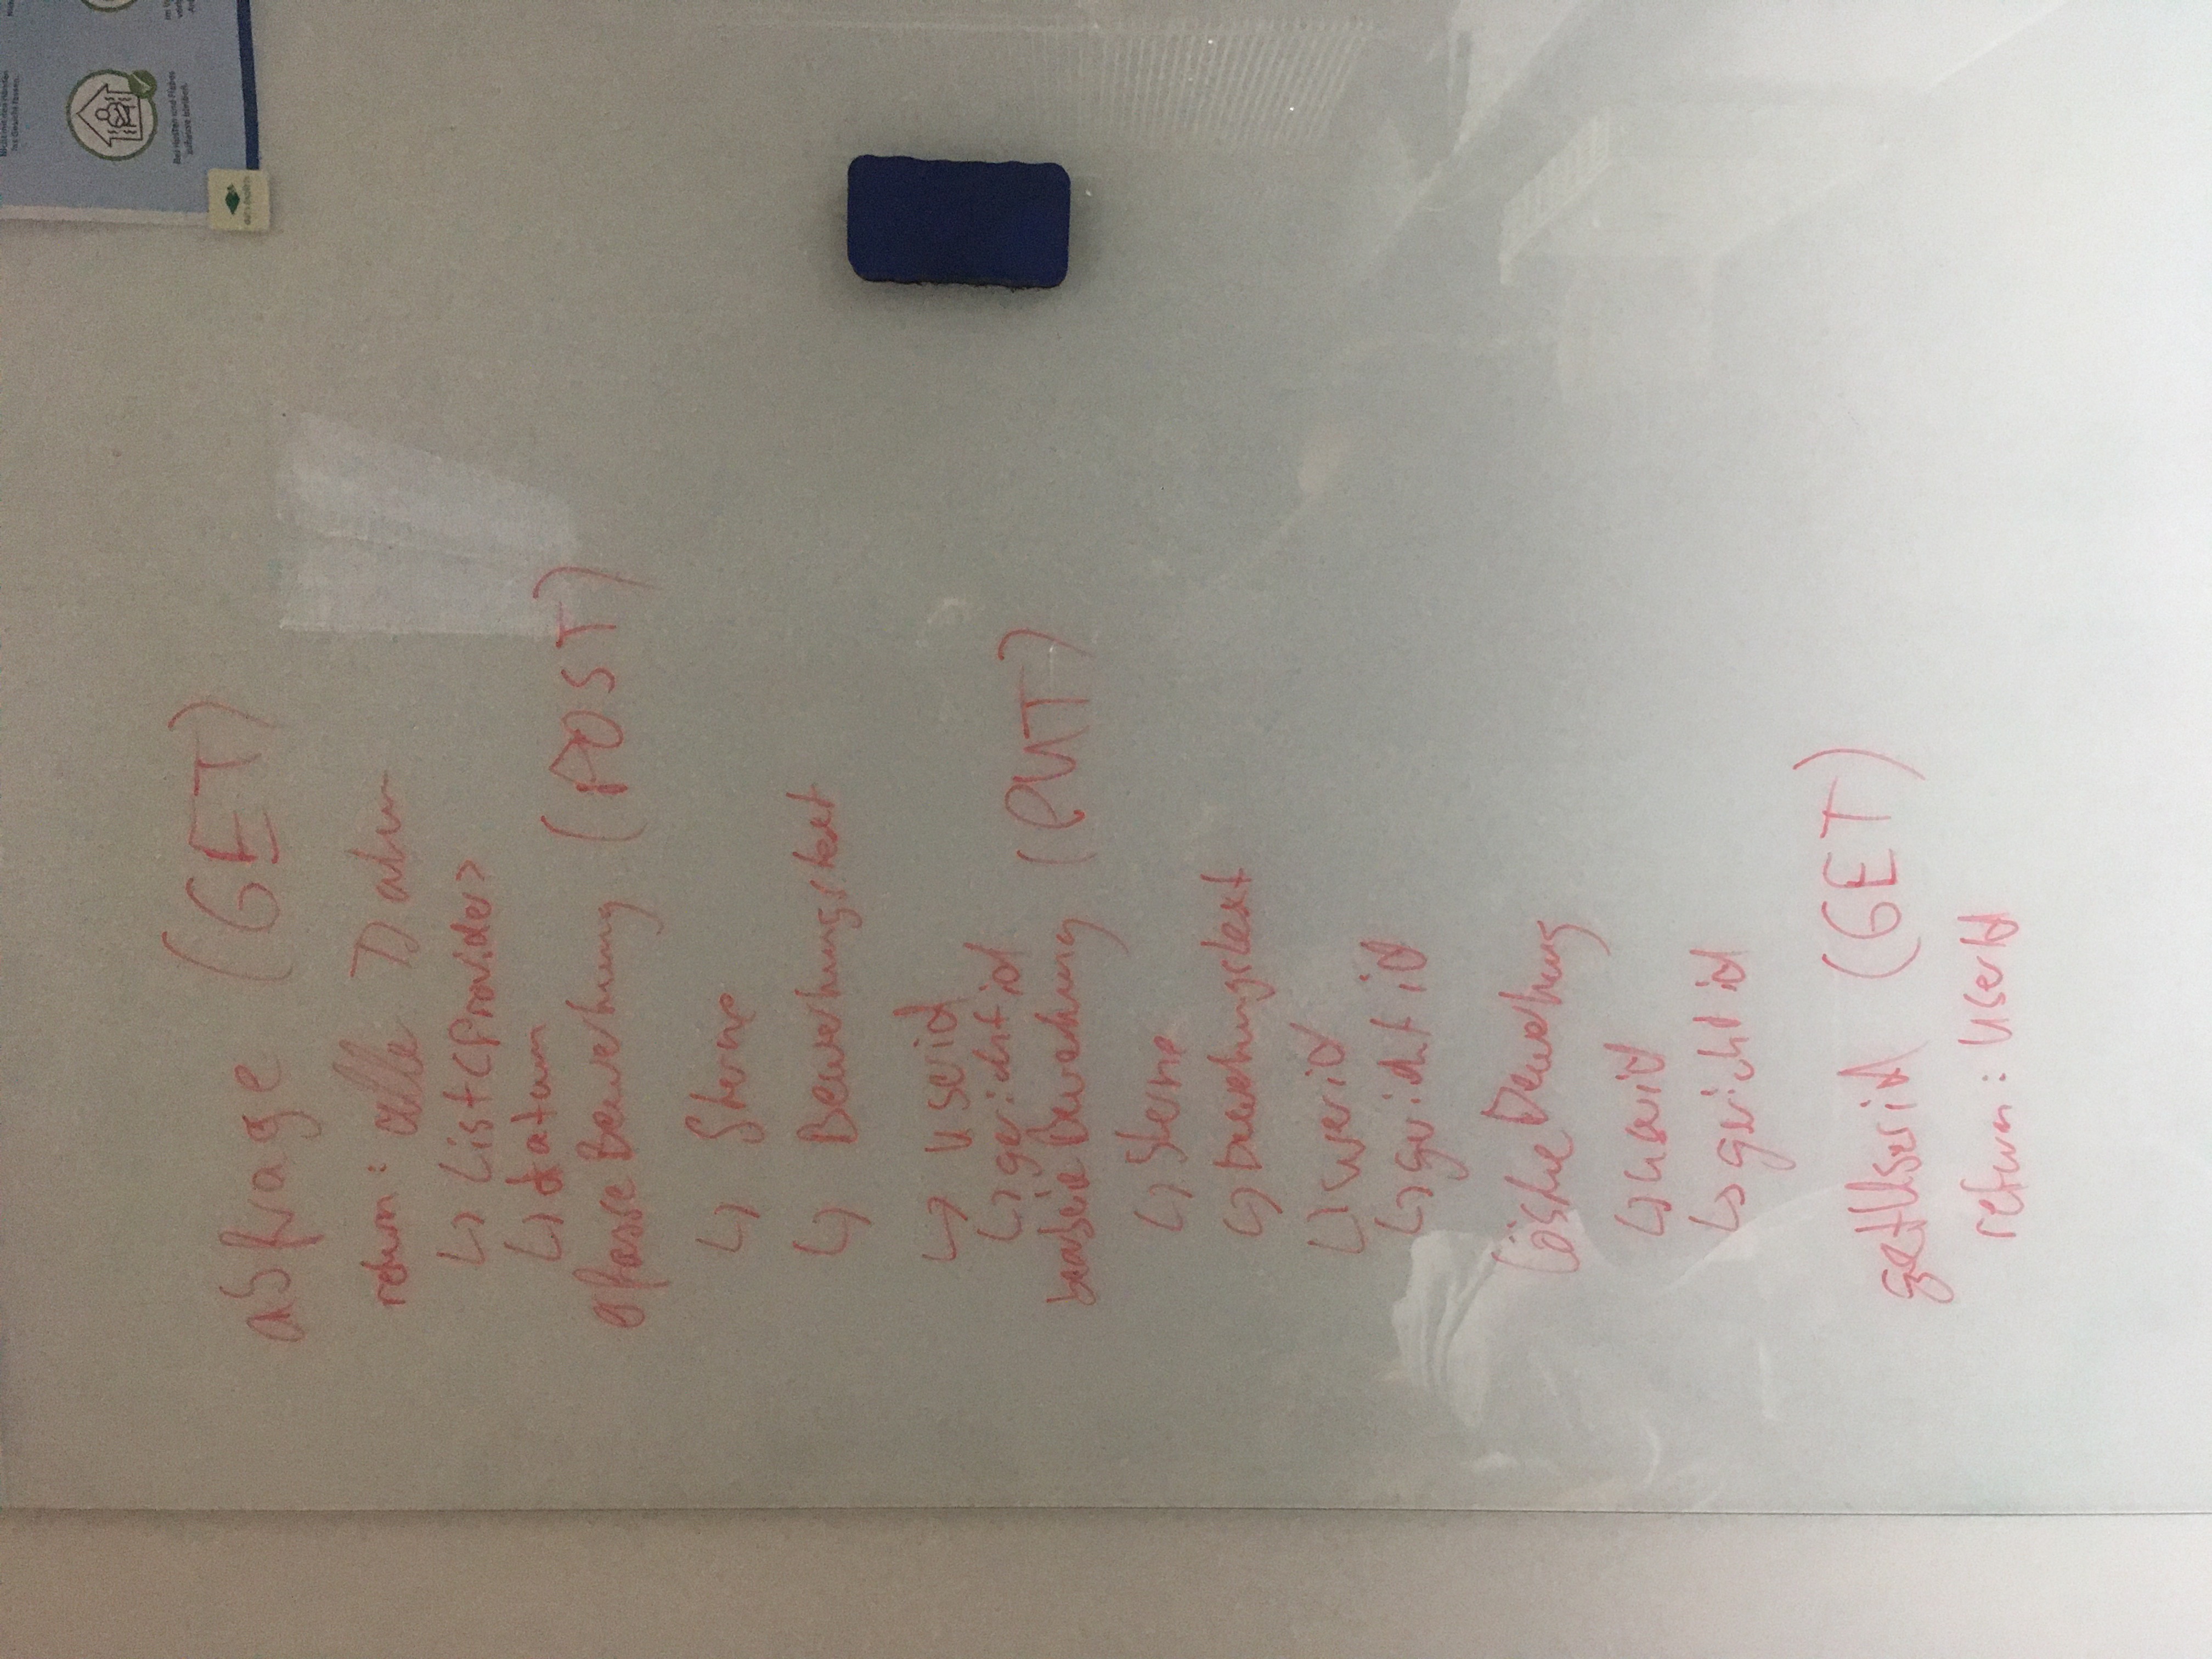 Nicht mit den Händen
ins Gesicht fassen.
Bei Husten und Fieber
zuhause bleiben.
abfrage (GET)
return: alle Daten
↳ List<Provider>
↳ datum
erfasseBewertung (POST)
↳ Sterne
↳ Bewertungstext
↳ userid
↳ gericht id
bearbeiteBewertung (PUT)
↳ Sterne
↳ Bewertungstext
↳ userid
↳ gericht id
löscheBewertung
↳ userid
↳ gericht id
getUserid (GET)
return: UserId